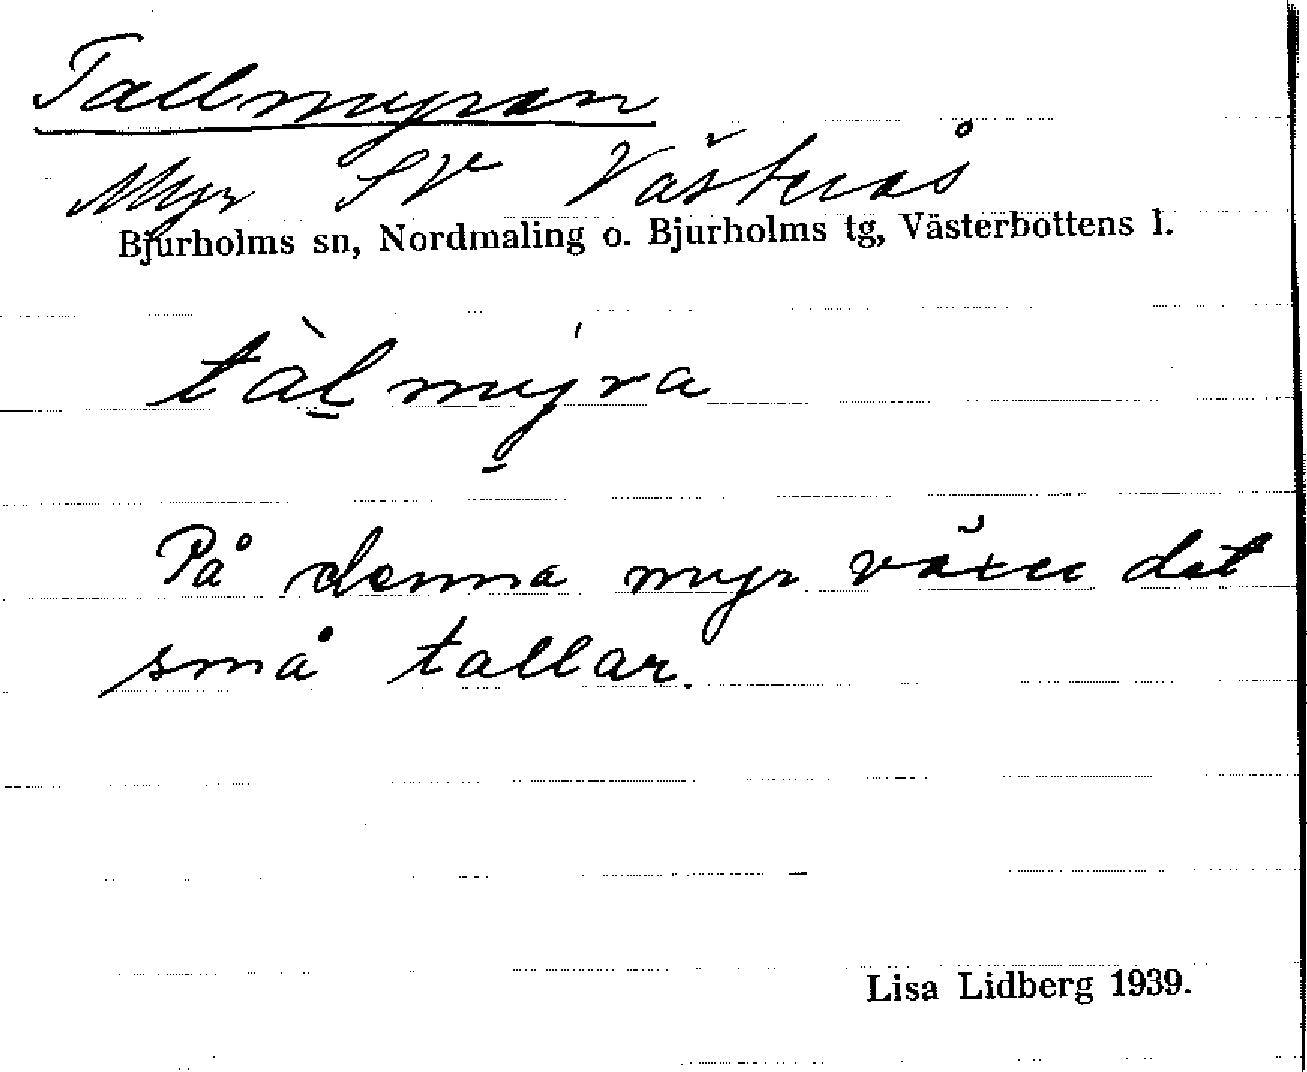 Tallmyran
Myr SV Västerås
Bjurholms sn, Nordmaling o. Bjurholms tg, Västerbottens l.
tàl̠my̠̍ra
På denna myr växer det
små tallar.
Lisa Lidberg 1939.